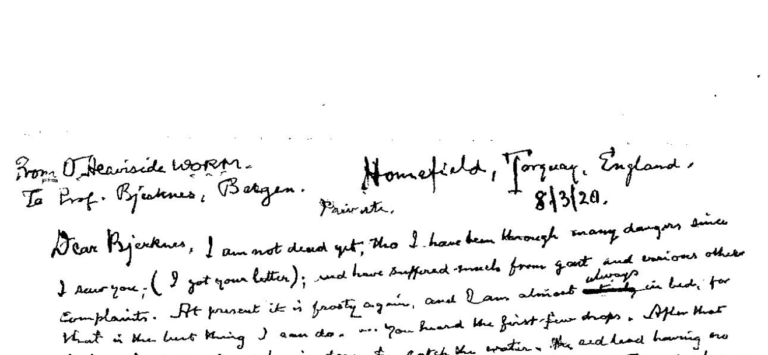 From O. Heaviside WORM.
To Prof. Bjerknes, Bergen.
Homefield, Torquay, England.
Private.
8/3/20.
Dear Bjerknes, I am not dead yet, tho I have been through many dangers since
I saw you; (I got your letter); and have suffered much from gout and various other
complaints. At present it is frosty again, and I am almost always in bed, for
that is the best thing I can do. ... You heard the first few drops. After that
to catch the water. The aed lead having no